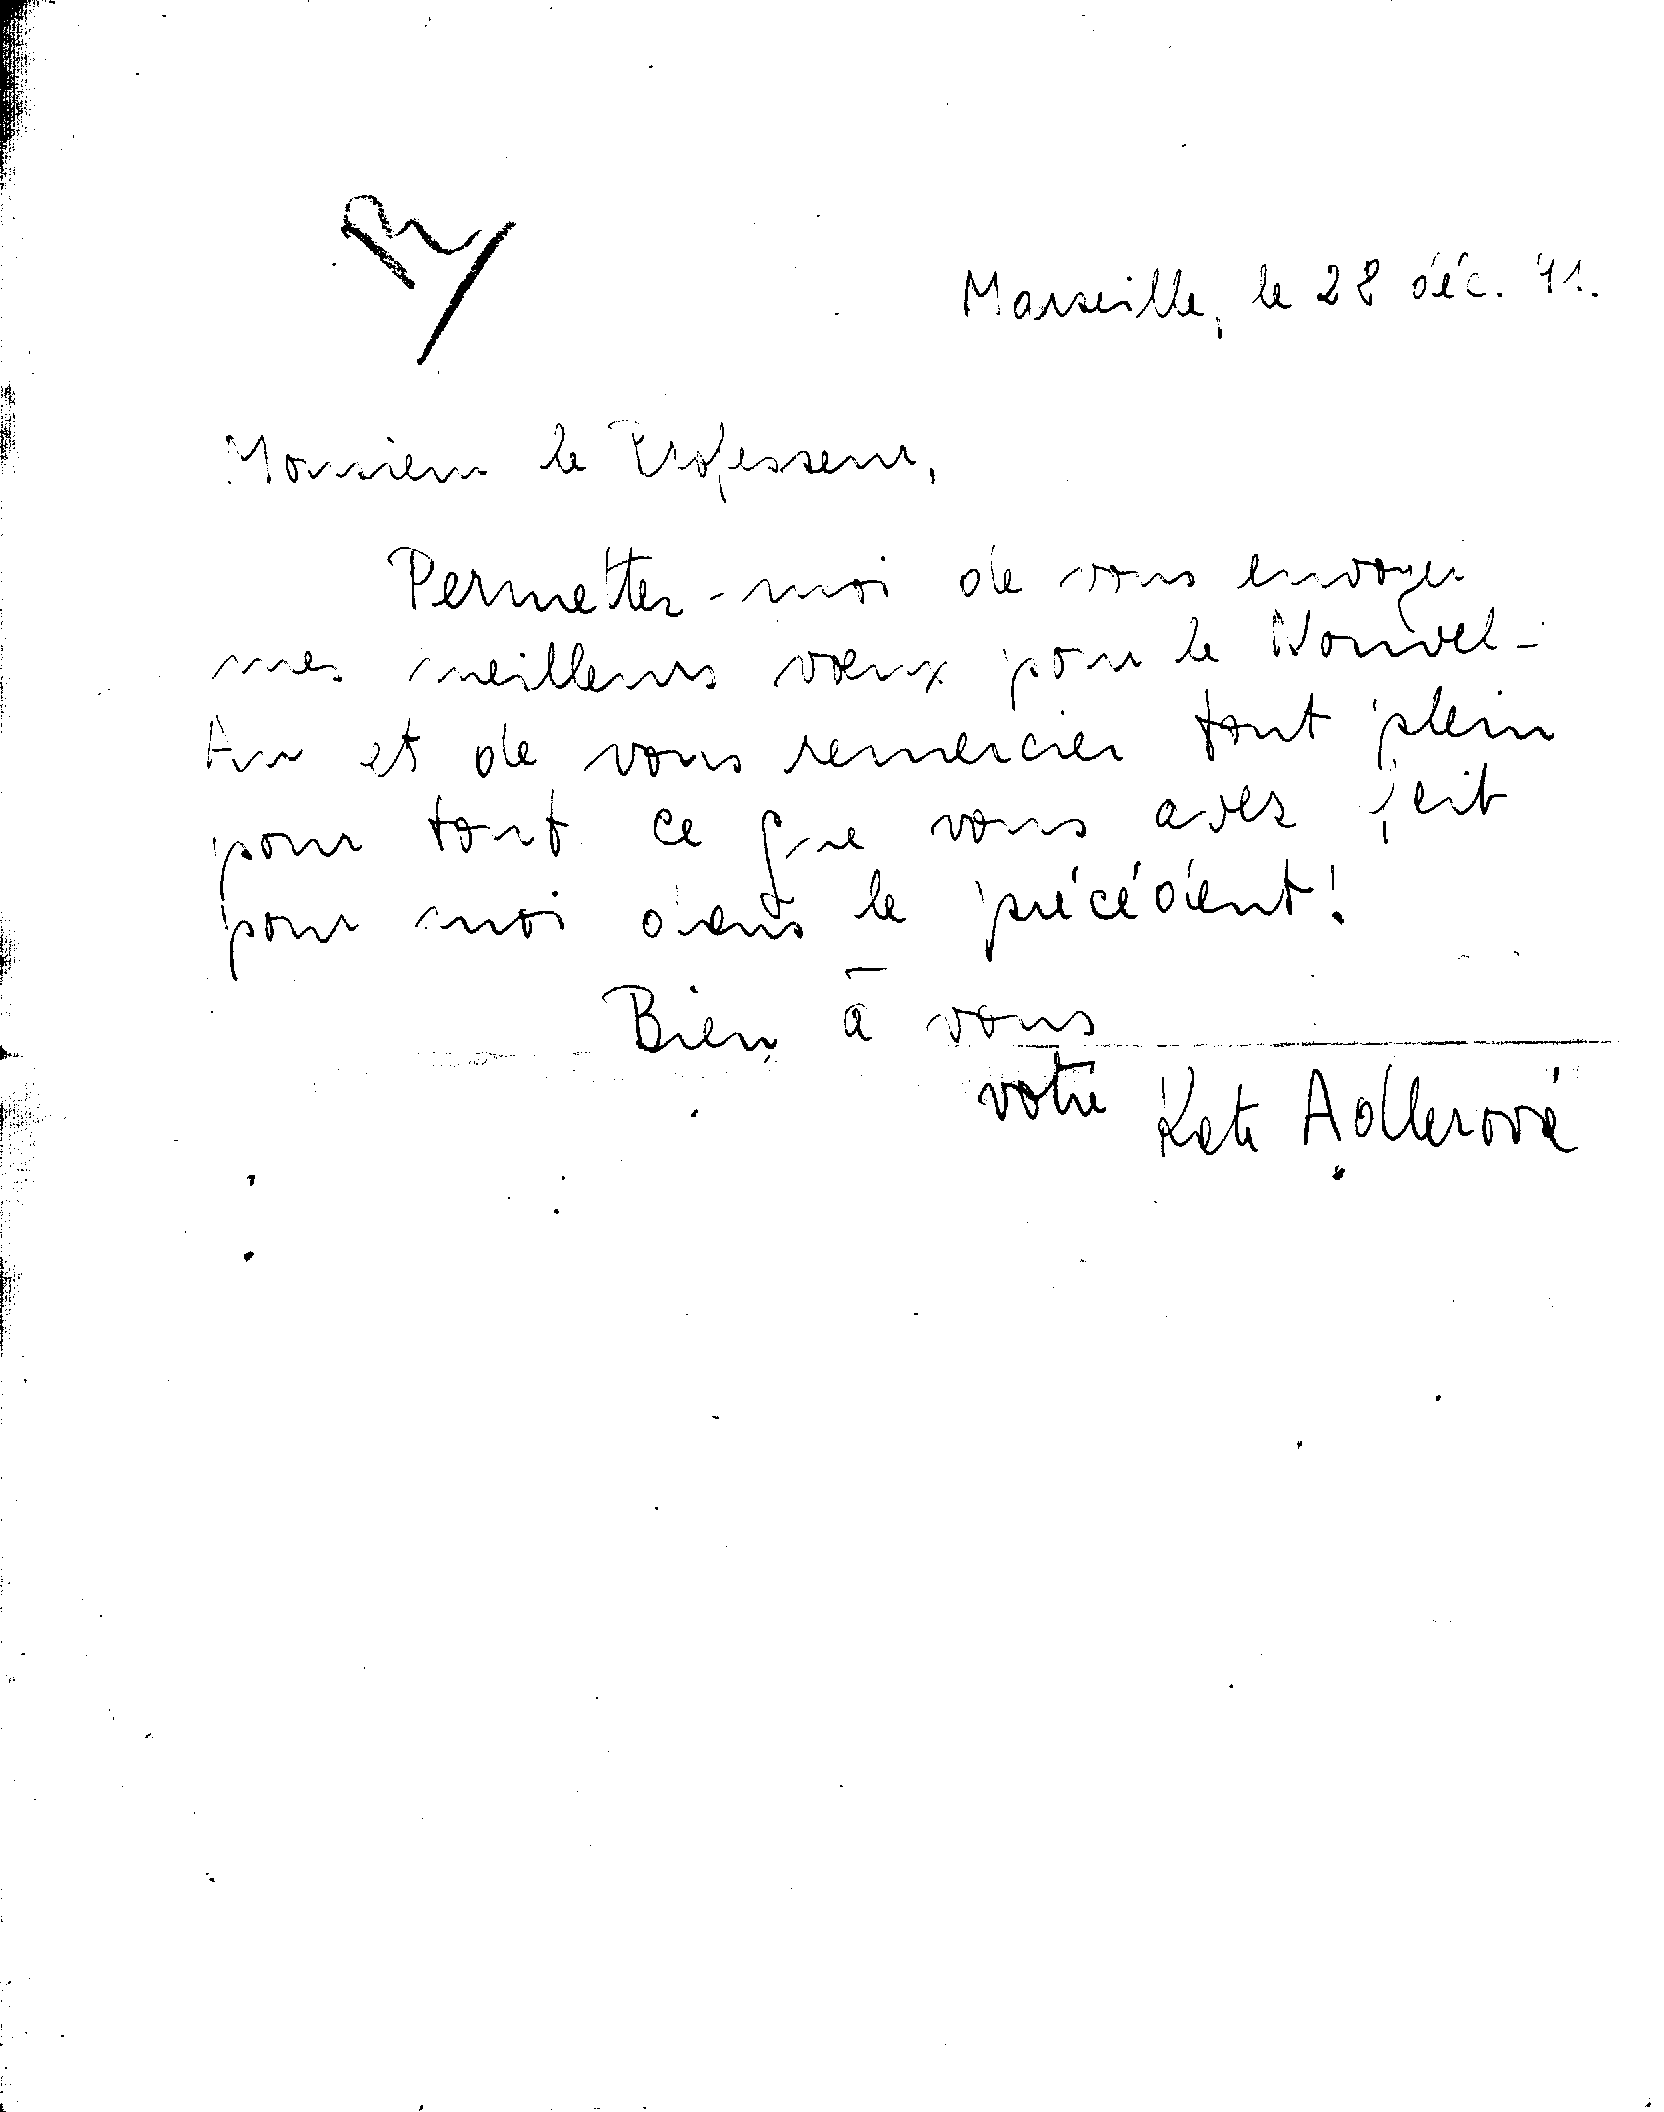 Marseille, le 28 déc. 41.
Monsieur le Professeur,
Permettez-moi de vous envoyer
mes meilleurs vœux pour le Nouvel-
An et de vous remercier tout plein
pour tout ce que vous avez fait
pour moi dans le précédent!
Bien à vous
votre Kate Adlerová